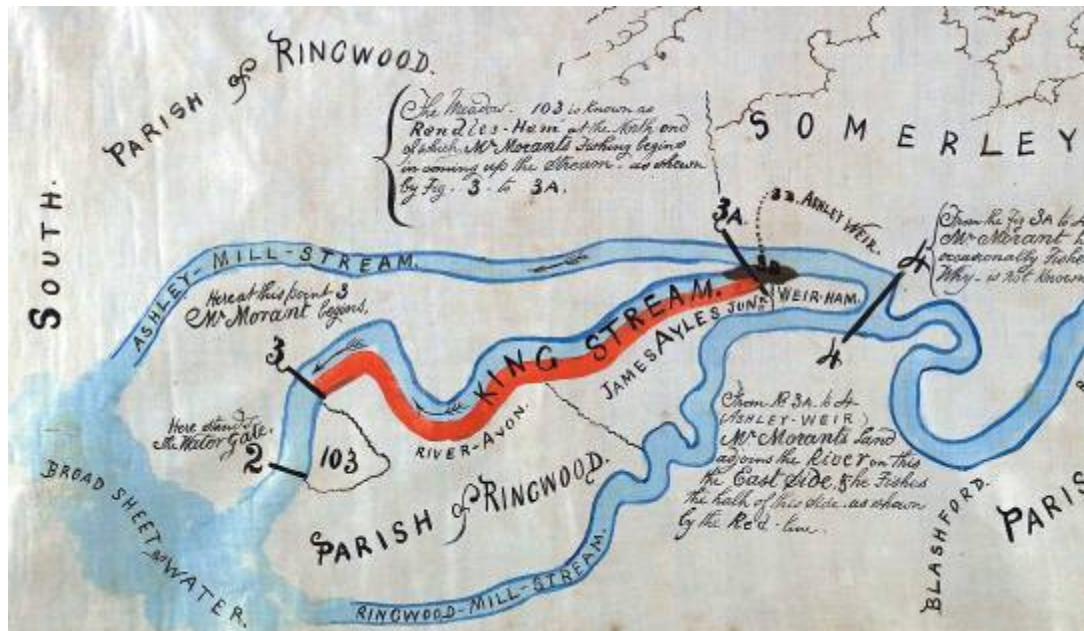 PARISH of RINGWOOD.
The Meadow. 103 is known as
Randles-Ham at the North end
of which Mr Morants Fishing begins
in coming up the Stream - as shewn
by Fig. 3 to 3A.
SOMERLEY
SOUTH.
3A
3B. ASHLEY WEIR.
3B
From the Fig 3A to
Mr Morant
occasionally Fishe
Why - is not Known
4
4
ASHLEY-MILL-STREAM.
Here at this point 3
Mr Morant begins,
3
KING STREAM.
JAMES AYLES JUNR
WEIR-HAM.
Here stands
the Water Gate.
2
103
RIVER-AVON.
From No 3A to 4
(ASHLEY-WEIR)
Mr Morants Land
adjoins the River on this
the East Side, & he Fishes
the half of this side as shown
by the Red-line.
BROAD SHEET of WATER.
PARISH of RINGWOOD.
RINGWOOD-MILL-STREAM.
BLASHFORD.
PARIS